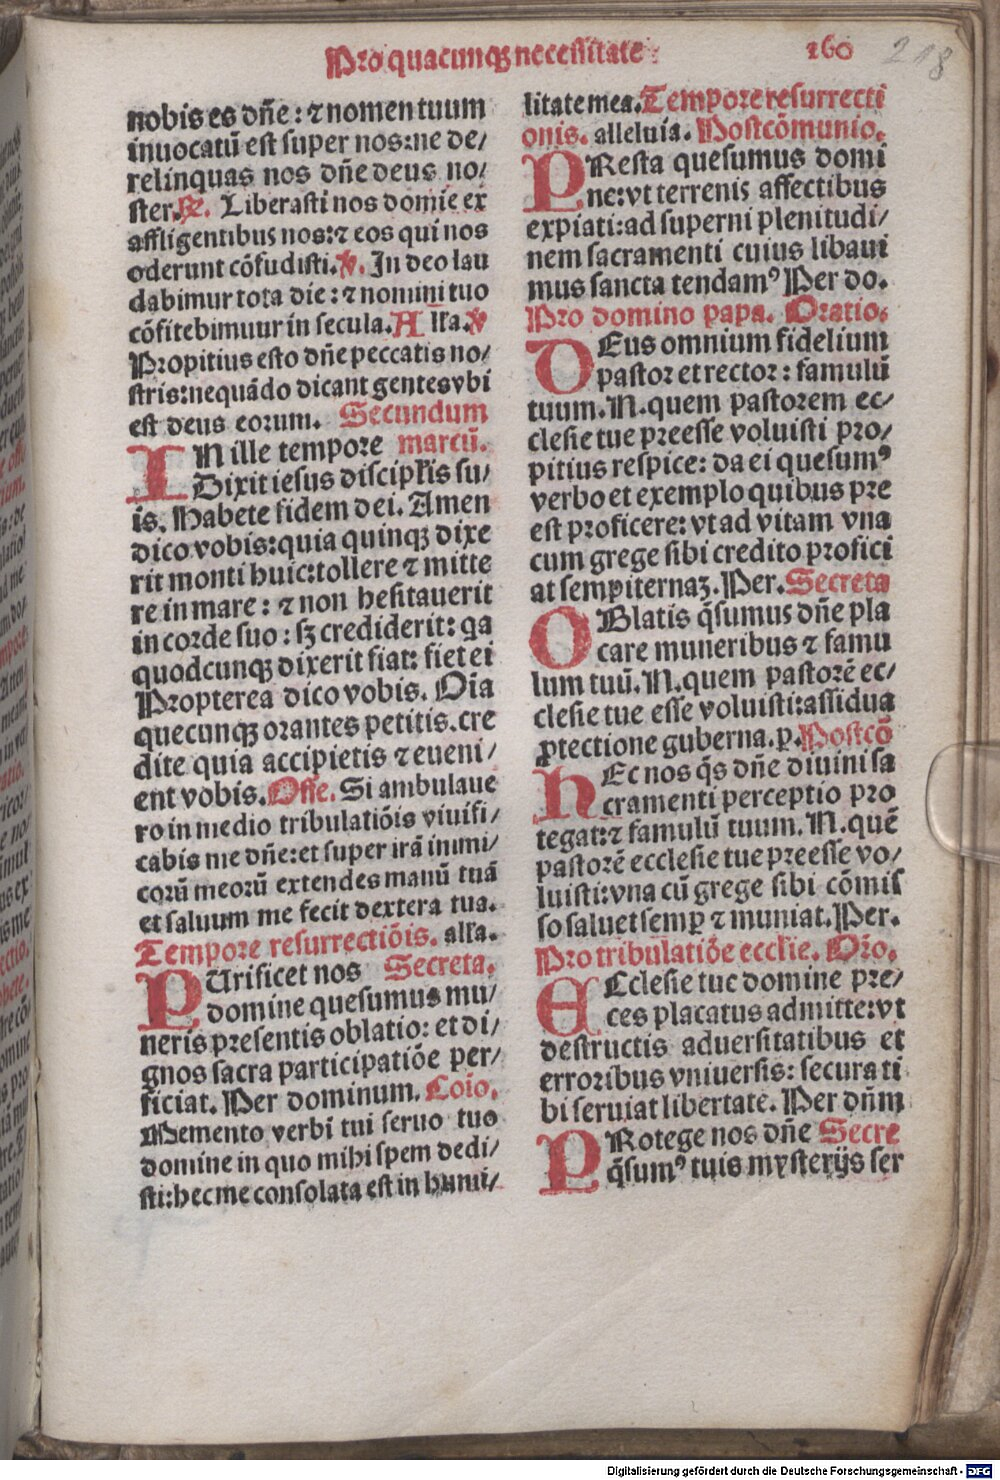 Pro quacunqꝫ necessitate. 260
218
nobis es dñe: ⁊ nomen tuum
inuocatũ est super nos: ne de/
relinquas nos dñe deus no/
ster. ℟. Liberasti nos domĩe ex
affligentibus nos: ⁊ eos qui nos
oderunt cõfudisti. ℣. In deo lau
dabimur tota die: ⁊ nomini tuo
cõfitebimuur in secula. Alľa. ℣
Propitius esto dñe peccatis no/
stris: nequãdo dicant gentes vbi
est deus eorum. Secundum
IN ille tempore marcũ.
Dixit iesus discipľis su/
is. Habete fidem dei. Amen
dico vobis: quia quinqꝫ dixe
rit monti huic: tollere ⁊ mitte
re in mare: ⁊ non hesitauerit
in corde suo: sꝫ crediderit: qa
quodcunqꝫ dixerit fiat: fiet ei
Propterea dico vobis. Oĩa
quecunqꝫ orantes petitis. cre
dite quia accipietis ⁊ eueni/
ent vobis. Offe. Si ambulaue
ro in medio tribulatiõis viuifi/
cabis me dñe: et super irã inimi/
corũ meorũ extendes manũ tuã
et saluum me fecit dextera tua.
Tempore resurrectiõis. alľa.
PUrificet nos Secreta.
domine quesumus mu/
neris presentis oblatio: et di/
gnos sacra participatiõe per/
ficiat. Per dominum. Coĩo.
Memento verbi tui seruo tuo
domine in quo mihi spem dedi/
sti: hec me consolata est in humi/
litate mea. Tempore resurrecti
onis. alleluia. Postcõmunio.
PResta quesumus domi
ne: vt terrenis affectibus
expiati: ad superni plenitudi/
nem sacramenti cuius libaui
mus sancta tendamꝰ Per do.
Pro domino papa. Oratio.
DEus omnium fidelium
pastor et rector: famulũ
tuum. N. quem pastorem ec/
clesie tue preesse voluisti pro/
pitius respice: da ei quesumꝰ
verbo et exemplo quibus pre
est proficere: vt ad vitam vna
cum grege sibi credito profici
at sempiternaꝫ. Per. Secreta
OBlatis q̃sumus dñe pla
care muneribus ⁊ famu
lum tuũ. N. quem pastorẽ ec/
clesie tue esse voluisti: assidua
ꝓtectione guberna. ꝑ. Postcõ
hEc nos q̃s dñe diuini sa
cramenti perceptio pro
tegat: ⁊ famulũ tuum. N. quẽ
pastorẽ ecclesie tue preesse vo/
luisti: vna cũ grege sibi cõmis
so saluet semꝑ ⁊ muniat. Per.
Pro tribulatiõe ecclie. Orõ.
ECclesie tue domine pre/
ces placatus admitte: vt
destructis aduersitatibus et
erroribus vniuersis: secura ti
bi seruiat libertate. Per dñm
PRotege nos dñe Secre
q̃sumꝰ tuis mysterijs ser
Digitalisierung gefördert durch die Deutsche Forschungsgemeinschaft - DFG